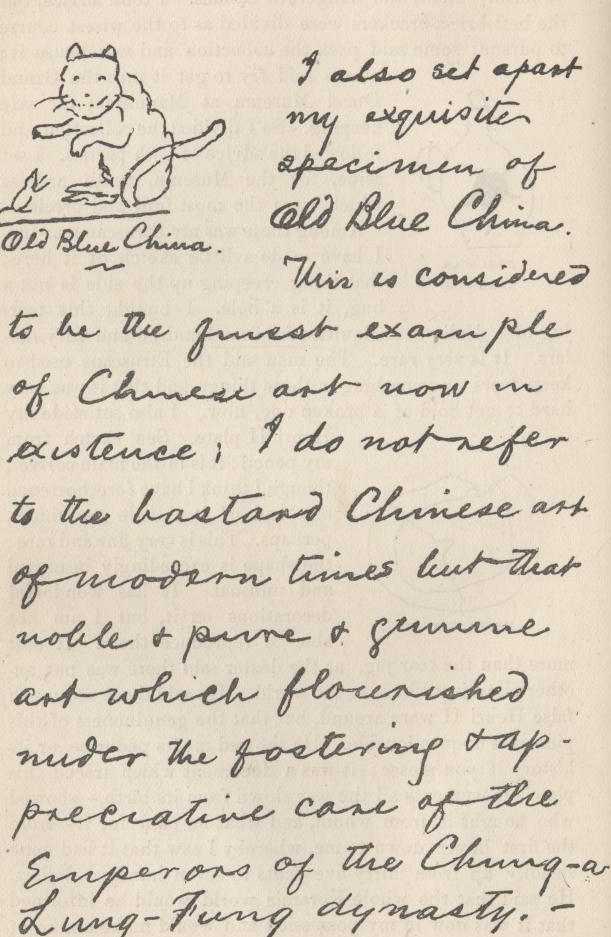 I also set apart
my exquisite
specimen of
Old Blue China.
Old Blue China.
This is considered
to be the finest example
of Chinese art now in
existence; I do not refer
to the bastard Chinese art
of modern times but that
noble & pure & genuine
art which flourished
under the fostering & ap-
preciative care of the
Emperors of the Chung-a-
Lung-Fung dynasty. —